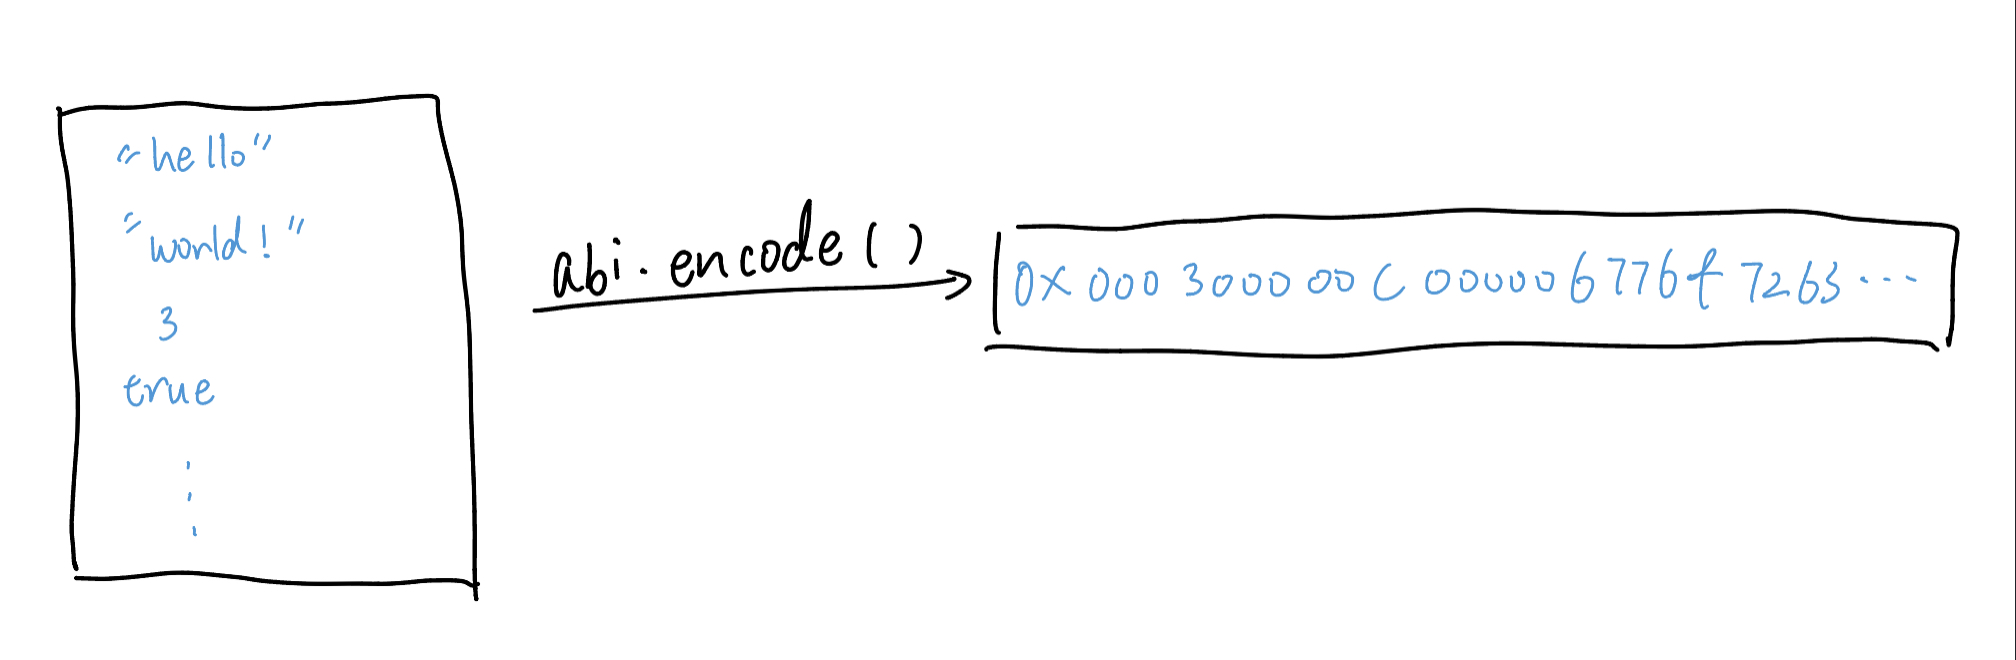 "hello"
"world!"
3
true
⋮
abi.encode()
0x0003000000C000006776f7263...